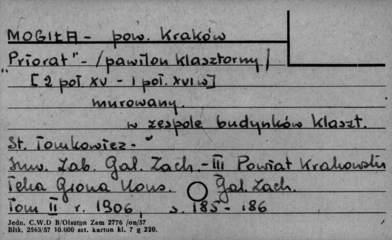 MOGIŁA - pow. Kraków
"Priorat" - /pawilon klasztorny/
[2 poł. XV - 1 poł. XVI w]
murowany.
w zespole budynków klaszt.
St. Tomkowicz -
Inw. Zab. Gal. Zach. - III Powiat Krakowski
Teka Grona Kons. Gal. Zach.
Tom II r. 1906, s. 185 - 186
Jedn. C.W.D B/Olsztyn Zam 2776 /on/57
Błtk. 2563/57 10.000 szt. karton kl. 7 g 220.